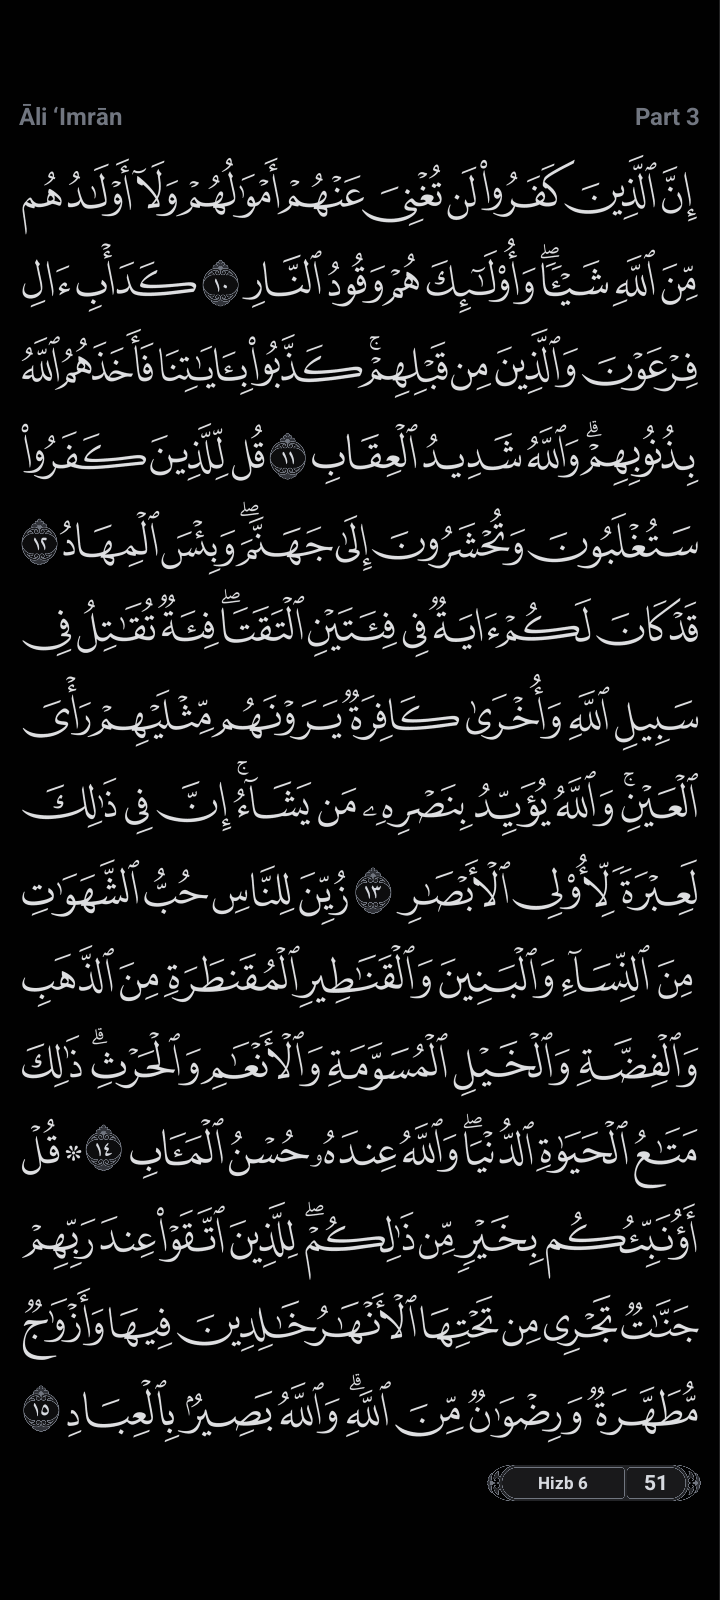 Āli ‘Imrān Part 3
إِنَّ ٱلَّذِينَ كَفَرُوا۟ لَن تُغْنِىَ عَنْهُمْ أَمْوَٰلُهُمْ وَلَآ أَوْلَـٰدُهُم
مِّنَ ٱللَّهِ شَيْـًٔا ۖ وَأُو۟لَـٰٓئِكَ هُمْ وَقُودُ ٱلنَّارِ ١٠ كَدَأْبِ ءَالِ
فِرْعَوْنَ وَٱلَّذِينَ مِن قَبْلِهِمْ ۚ كَذَّبُوا۟ بِـَٔايَـٰتِنَا فَأَخَذَهُمُ ٱللَّهُ
بِذُنُوبِهِمْ ۗ وَٱللَّهُ شَدِيدُ ٱلْعِقَابِ ١١ قُل لِّلَّذِينَ كَفَرُوا۟
سَتُغْلَبُونَ وَتُحْشَرُونَ إِلَىٰ جَهَنَّمَ ۖ وَبِئْسَ ٱلْمِهَادُ ١٢
قَدْ كَانَ لَكُمْ ءَايَةٌ فِى فِئَتَيْنِ ٱلْتَقَتَا ۖ فِئَةٌ تُقَـٰتِلُ فِى
سَبِيلِ ٱللَّهِ وَأُخْرَىٰ كَافِرَةٌ يَرَوْنَهُم مِّثْلَيْهِمْ رَأْىَ
ٱلْعَيْنِ ۚ وَٱللَّهُ يُؤَيِّدُ بِنَصْرِهِۦ مَن يَشَآءُ ۗ إِنَّ فِى ذَٰلِكَ
لَعِبْرَةً لِّأُو۟لِى ٱلْأَبْصَـٰرِ ١٣ زُيِّنَ لِلنَّاسِ حُبُّ ٱلشَّهَوَٰتِ
مِنَ ٱلنِّسَآءِ وَٱلْبَنِينَ وَٱلْقَنَـٰطِيرِ ٱلْمُقَنطَرَةِ مِنَ ٱلذَّهَبِ
وَٱلْفِضَّةِ وَٱلْخَيْلِ ٱلْمُسَوَّمَةِ وَٱلْأَنْعَـٰمِ وَٱلْحَرْثِ ۗ ذَٰلِكَ
مَتَـٰعُ ٱلْحَيَوٰةِ ٱلدُّنْيَا ۖ وَٱللَّهُ عِندَهُۥ حُسْنُ ٱلْمَـَٔابِ ١٤ * قُلْ
أَؤُنَبِّئُكُم بِخَيْرٍ مِّن ذَٰلِكُمْ ۖ لِلَّذِينَ ٱتَّقَوْا۟ عِندَ رَبِّهِمْ
جَنَّـٰتٌ تَجْرِى مِن تَحْتِهَا ٱلْأَنْهَـٰرُ خَـٰلِدِينَ فِيهَا وَأَزْوَٰجٌ
مُّطَهَّرَةٌ وَرِضْوَٰنٌ مِّنَ ٱللَّهِ ۗ وَٱللَّهُ بَصِيرٌۢ بِٱلْعِبَادِ ١٥
Hizb 6 51